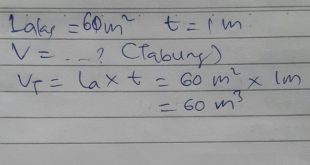 Lalas = 60 m² t = 1 m
V = ...? (Tabung)
VT = La x t = 60 m² x 1m
= 60 m³